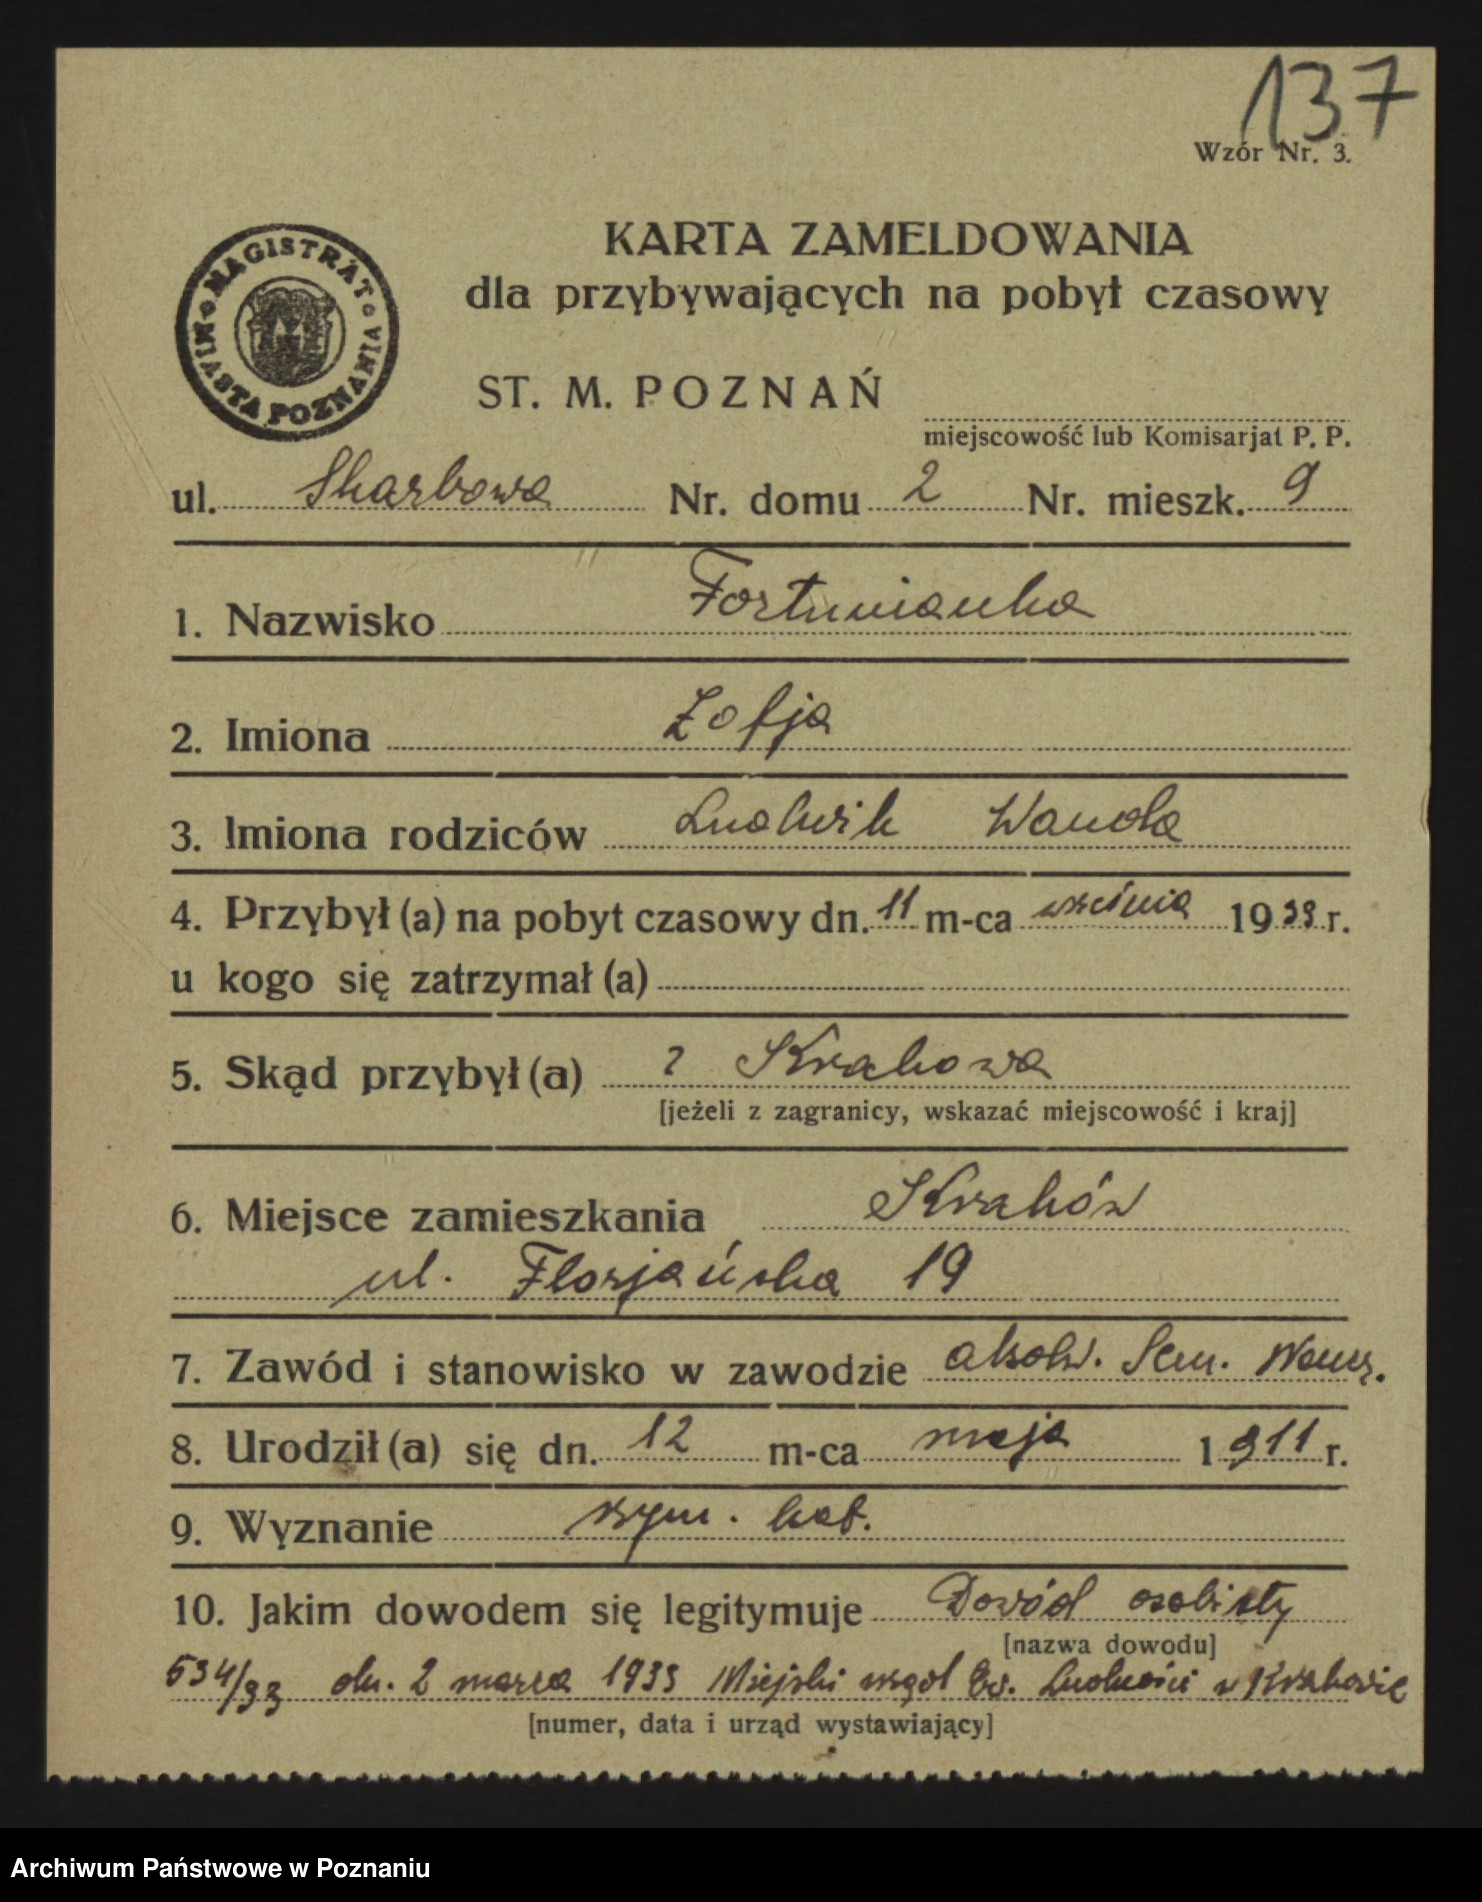 137
Wzór Nr. 3.
KARTA ZAMELDOWANIA
dla przybywających na pobyt czasowy
MAGISTRAT MIASTA POZNANIA
ST. M. POZNAŃ
miejscowość lub Komisarjat P. P.
ul. Skarbowa Nr. domu 2 Nr. mieszk. 9
1. Nazwisko Fortunianka
2. Imiona Zofja
3. Imiona rodziców Ludwik Wanda
4. Przybył (a) na pobyt czasowy dn. 11 m-ca 1933 r.
u kogo się zatrzymał (a)
5. Skąd przybył (a) z Krakowa
[jeżeli z zagranicy, wskazać miejscowość i kraj]
6. Miejsce zamieszkania Kraków
ul. Florjańska 19
7. Zawód i stanowisko w zawodzie absolw. Sem. Naucz.
8. Urodził (a) się dn. 12 m-ca maja 1911 r.
9. Wyznanie rzym. kat.
10. Jakim dowodem się legitymuje Dowód osobisty
[nazwa dowodu]
534/33 dn. 2 marca 1933 Miejski urząd Ew. Ludności w Krakowie
[numer, data i urząd wystawiający]
Archiwum Państwowe w Poznaniu